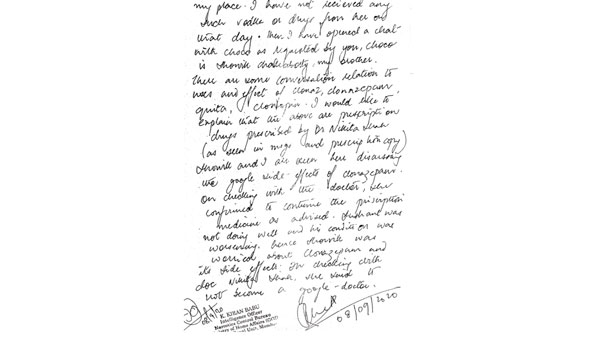 my place. I have not recieved any
such vodka or drugs from her on
that day. Then I have opened a chat
with choco as regarded by you, choco
is showik chakraborty, my brother.
there are some conversation relation to
uses and effect of clonaz, clonazepam
. I would like to
explain that the above are prescription
drugs prescribed by Dr Nikita
(as seen in msgs and prescription copy)
showik and I are seen here discussing
the google side-effects of clonazepam.
On checking with the doctor, she
confirmed to continue the prescription
medicine as advised. Sushant was
not doing well and his condition was
worsening. hence showik was
worried about clonazepam and
its side effects. On checking with
doc , she said to
not become a google-doctor.
K. KIRAN BABU
Intelligence Officer
Narcotics Control Bureau
08/09/2020